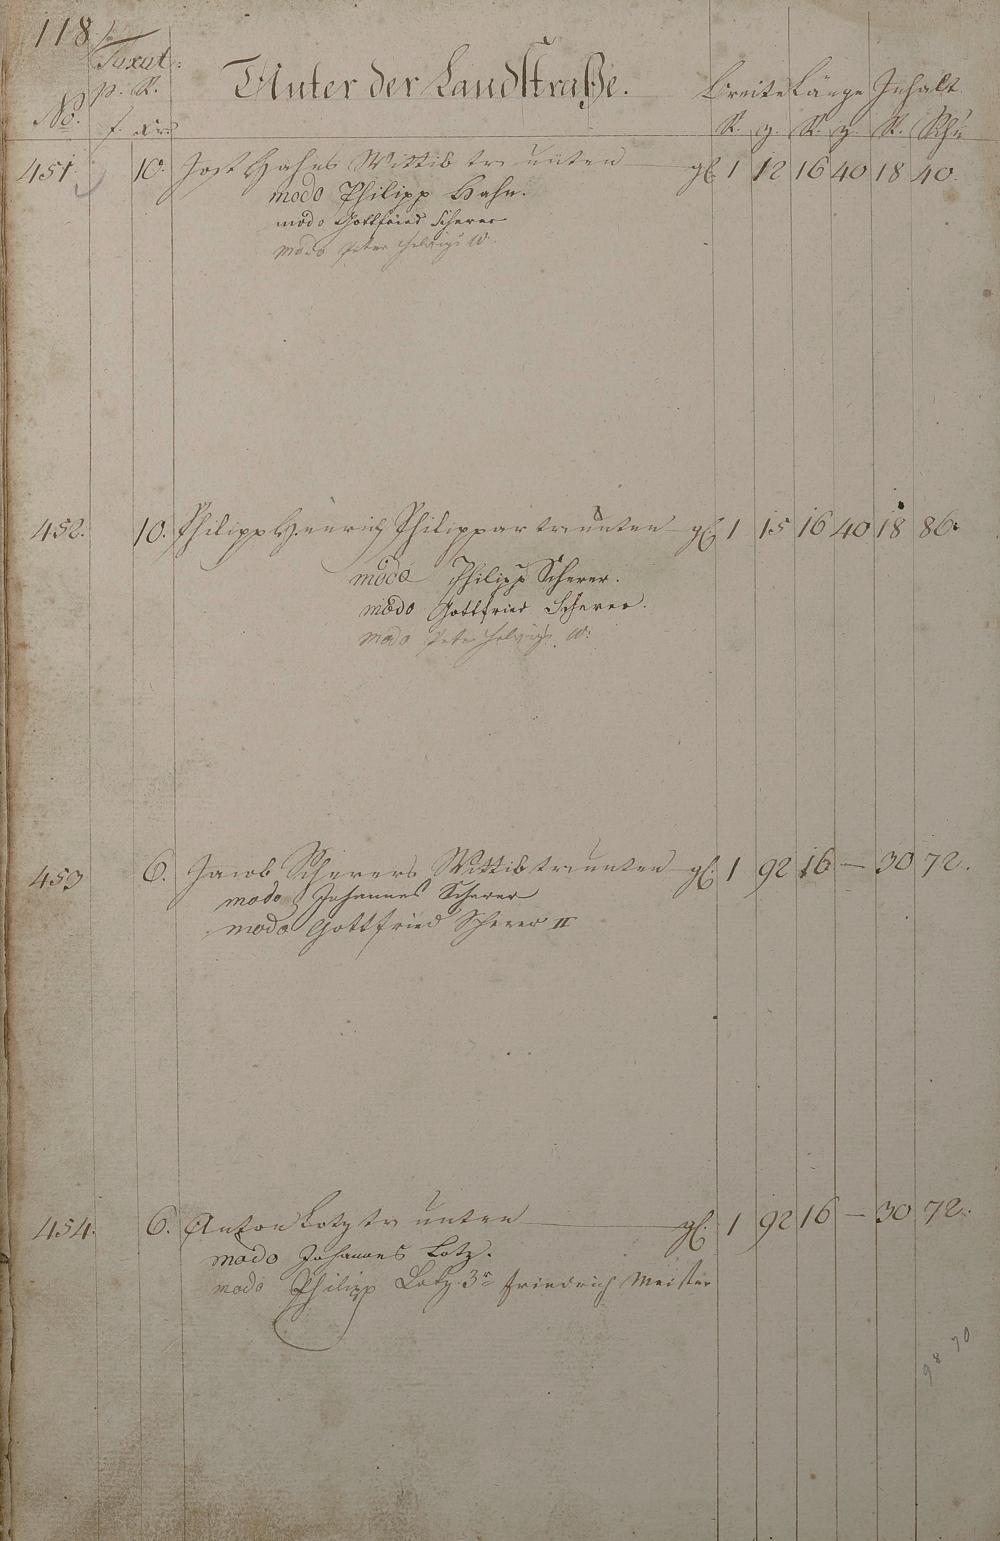 118.
Taxat:
p. R.
Unter der Landstraße.
Breite Länge Inhalt
No.
f. xr.
R. g. R. g. R. Schu
451. 10. Jost Hahns Wittib tr unten gl. 1 12 16 40 18 40.
modo Philipp Hahn.
modo Gottfried Scherer
modo Peter Helwigs W.
452. 10. Philipp Henrich Philippar tr unten gl. 1 15 16 40 18 86.
modo Philipp Scherer.
modo Gottfried Scherer.
modo Peter Helwigs W:
453 6. Jacob Scherers Wittib tr unten gl. 1 92 16 — 30 72.
modo Johannes Scherer
modo Gottfried Scherer II
454. 6. Anton Lotz tr unten gl. 1 92 16 — 30 72.
modo Johannes Lotz.
modo Philipp Lotz 3r Friedrich Meister
98 70